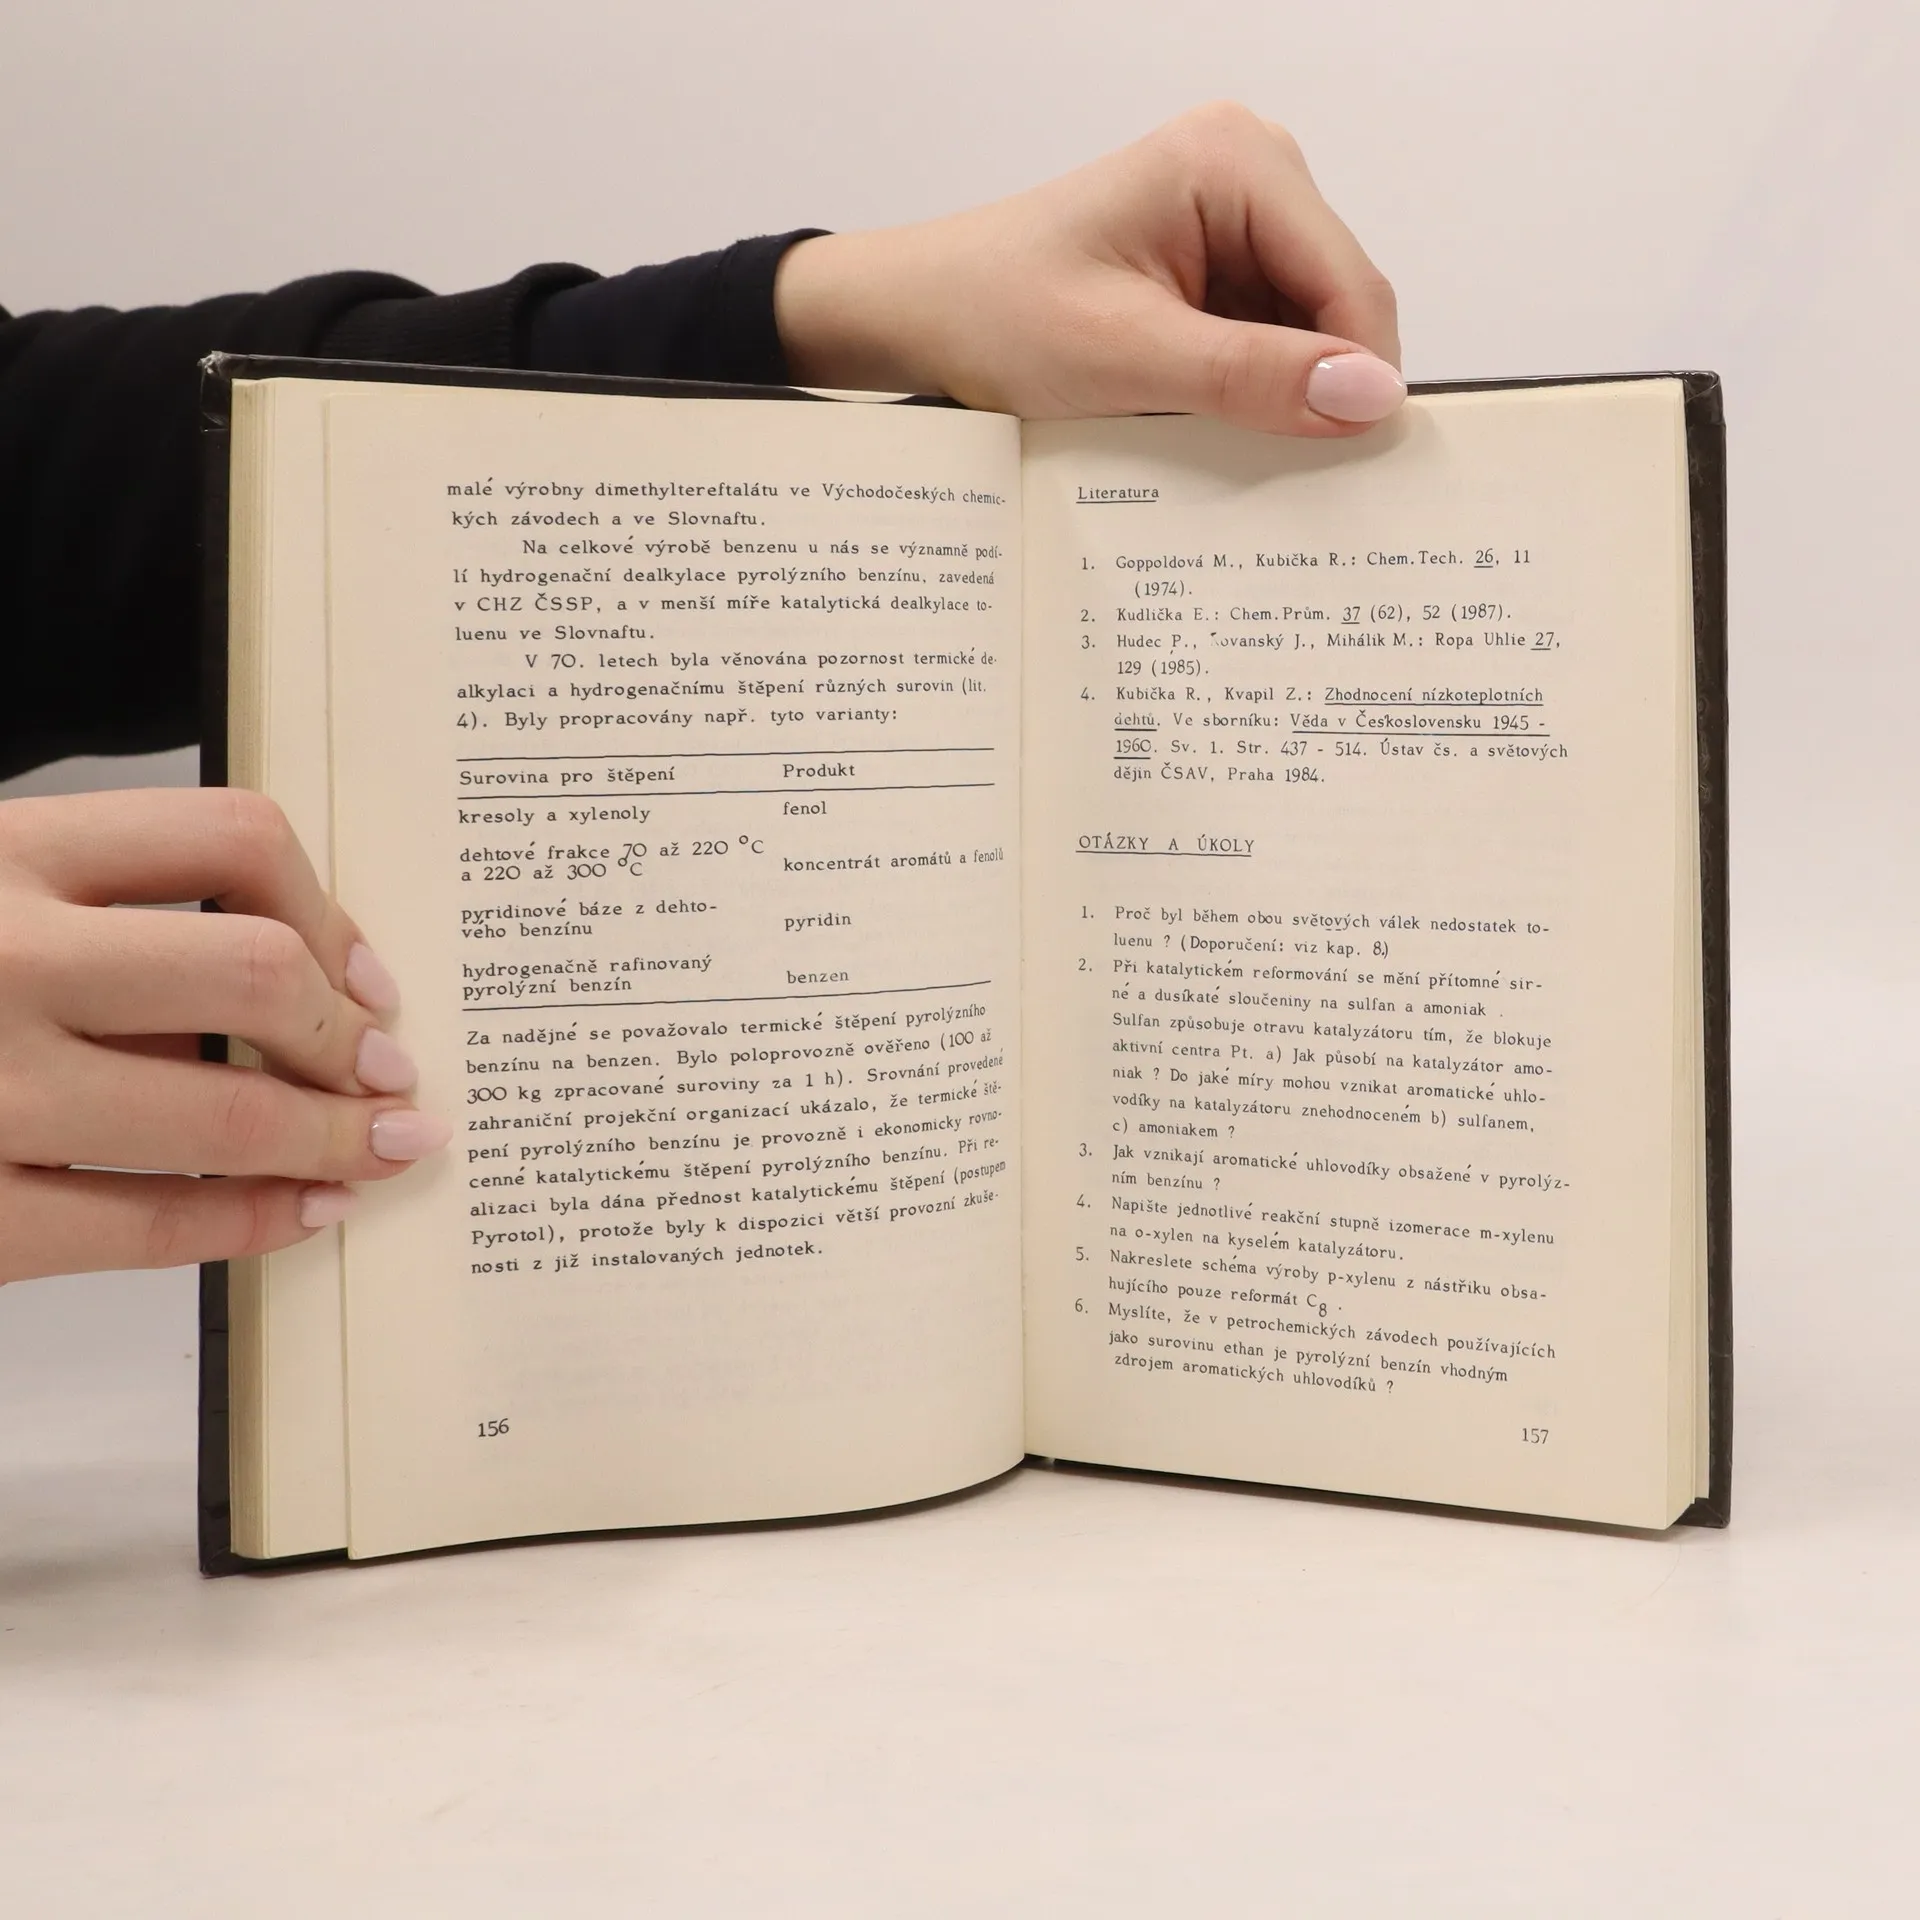 malé výrobny dimethyltereftalátu ve Východočeských chemic-
kých závodech a ve Slovnaftu.
Na celkové výrobě benzenu u nás se významně podí-
lí hydrogenační dealkylace pyrolýzního benzínu, zavedená
v CHZ ČSSP, a v menší míře katalytická dealkylace to-
luenu ve Slovnaftu.
V 70. letech byla věnována pozornost termické de-
alkylaci a hydrogenačnímu štěpení různých surovin (lit.
4). Byly propracovány např. tyto varianty:
Surovina pro štěpení Produkt
kresoly a xylenoly fenol
dehtové frakce 70 až 220 °C
a 220 až 300 °C koncentrát aromátů a fenolů
pyridinové báze z dehto-
vého benzínu pyridin
hydrogenačně rafinovaný
pyrolýzní benzín benzen
Za nadějné se považovalo termické štěpení pyrolýzního
benzínu na benzen. Bylo poloprovozně ověřeno (100 až
300 kg zpracované suroviny za 1 h). Srovnání provedené
zahraniční projekční organizací ukázalo, že termické ště-
pení pyrolýzního benzínu je provozně i ekonomicky rovno-
cenné katalytickému štěpení pyrolýzního benzínu. Při re-
alizaci byla dána přednost katalytickému štěpení (postupem
Pyrotol), protože byly k dispozici větší provozní zkuše-
nosti z již instalovaných jednotek.
156
Literatura
1. Goppoldová M., Kubička R.: Chem.Tech. 26, 11
(1974).
2. Kudlička E.: Chem.Prům. 37 (62), 52 (1987).
3. Hudec P., J., Mihálik M.: Ropa Uhlie 27,
129 (1985).
4. Kubička R., Kvapil Z.: Zhodnocení nízkoteplotních
dehtů. Ve sborníku: Věda v Československu 1945 -
1960. Sv. 1. Str. 437 - 514. Ústav čs. a světových
dějin ČSAV, Praha 1984.
OTÁZKY A ÚKOLY
1. Proč byl během obou světových válek nedostatek to-
luenu ? (Doporučení: viz kap. 8.)
2. Při katalytickém reformování se mění přítomné sir-
né a dusíkaté sloučeniny na sulfan a amoniak .
Sulfan způsobuje otravu katalyzátoru tím, že blokuje
aktivní centra Pt. a) Jak působí na katalyzátor amo-
niak ? Do jaké míry mohou vznikat aromatické uhlo-
vodíky na katalyzátoru znehodnoceném b) sulfanem,
c) amoniakem ?
3. Jak vznikají aromatické uhlovodíky obsažené v pyrolýz-
ním benzínu ?
4. Napište jednotlivé reakční stupně izomerace m-xylenu
na o-xylen na kyselém katalyzátoru.
5. Nakreslete schéma výroby p-xylenu z nástřiku obsa-
hujícího pouze reformát C8 .
6. Myslíte, že v petrochemických závodech používajících
jako surovinu ethan je pyrolýzní benzín vhodným
zdrojem aromatických uhlovodíků ?
157